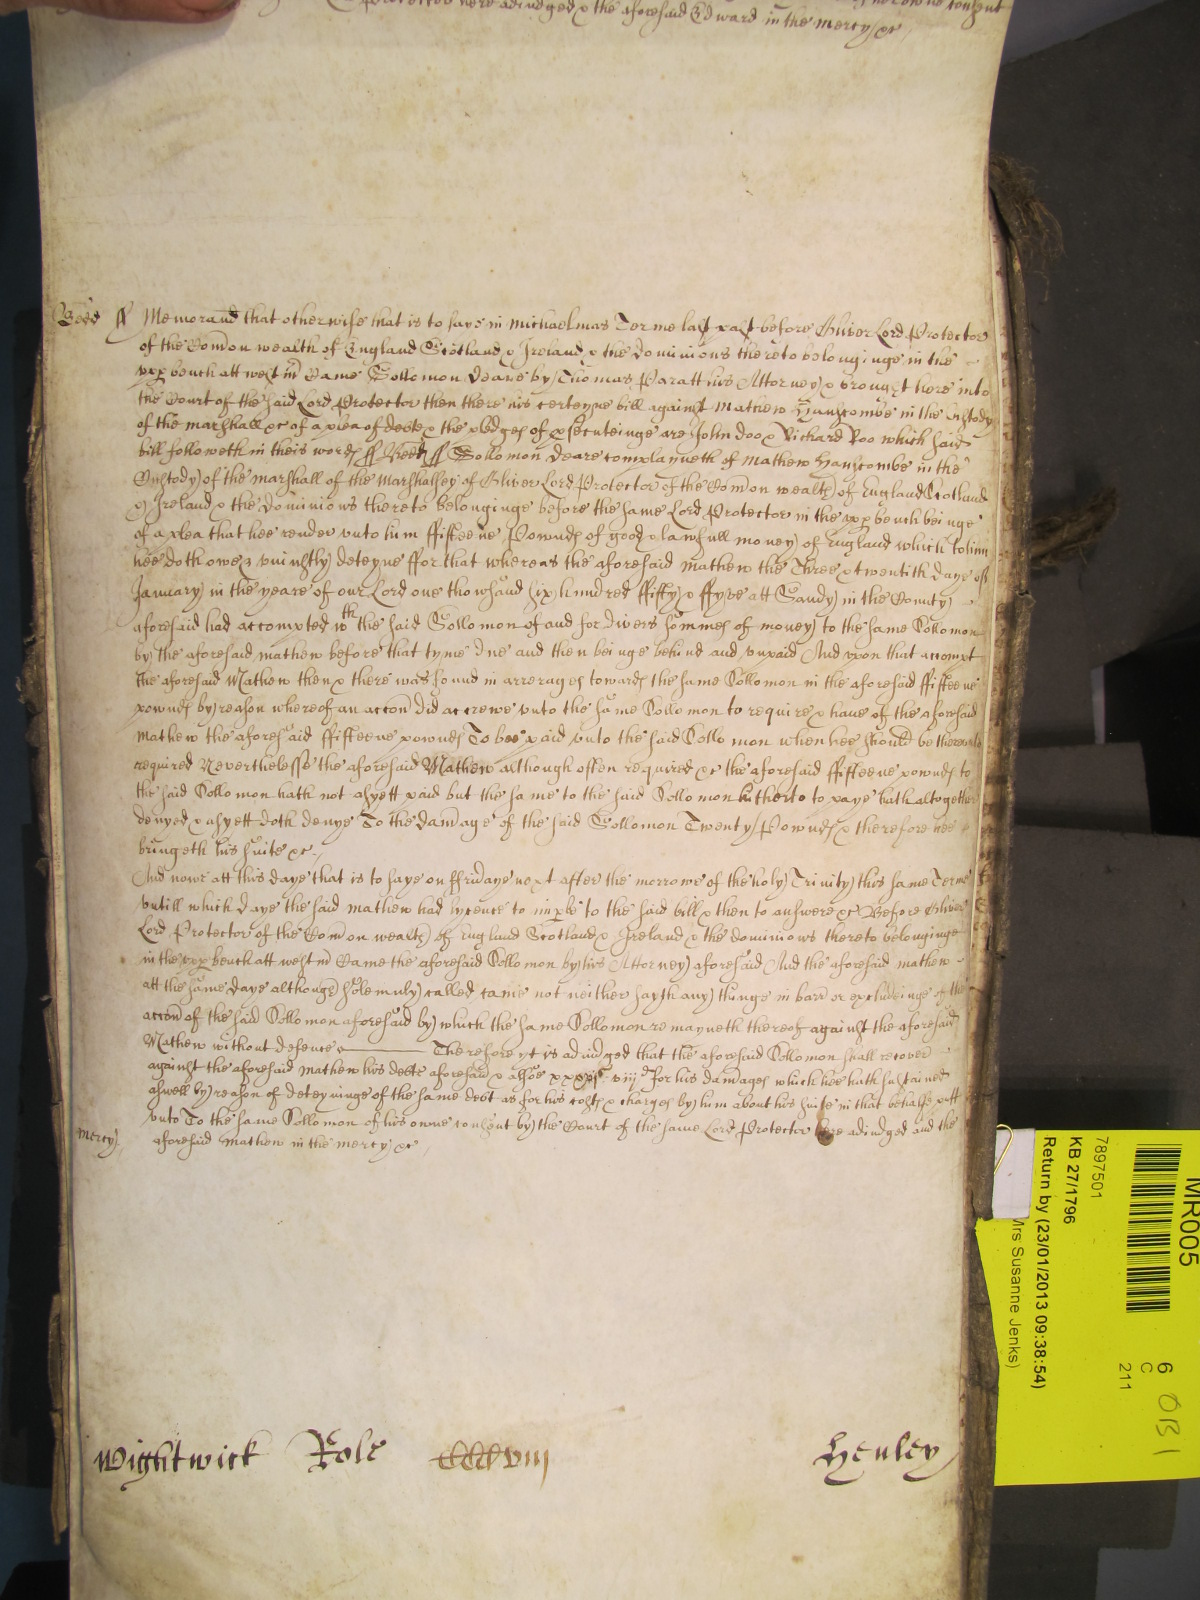 Protector here adiudged & the aforesaid Edward in the mercy &c
Bedd ss Memorand that otherwise that is to saye in Michaelmas Terme last past before Oliver Lord Protector
of the Com̄on wealth of England Scotland & Ireland & the dominions thereto belonginge in the
upp bench att westm̄ Came Sollomon Deare by Thomas Paratt his Attorney & brought here into
the Court of the said Lord Protector then there his certeyne bill against Mathew Hanscombe in the Custody
of the marshall &c of a plea of debt & the pledges of psecuteinge are John Doo & Richard Roo which said
bill followeth in theis words ss Bedd ss Sollomon Deare complayneth of Mathew Hanscombe in the
Custody of the marshall of the Marshalsey of Oliver Lord Protector of the Com̄on wealth of England Scotland
& Ireland & the Dominions thereto belonginge before the same Lord Protector in the upp bench beinge
of a plea that hee render unto him fifteene Pownds of good & lawfull money of England which to him
hee doth owe & uniustly deteyne ffor that whereas the aforesaid Mathew the Three & twentith daye of
January in the yeare of our Lord one thowsand six hundred ffiffty & ffyve att Sandy in the County
aforesaid had accompted wth the said Sollomon of and for divers sommes of money to the same Sollomon
by the aforesaid Mathew before that tyme due and then beinge behind and unpaid And upon that accompt
the aforesaid Mathew then & there was found in arrerages towards the same Sollomon in the aforesaid ffifteene
pownds by reason whereof an accon̄ did accrewe unto the same Sollomon to require & have of the aforesaid
Mathew the aforesaid ffifteene pownds To bee paid unto the said Sollomon when hee should be thereunto
required Neverthelesse the aforesaid Mathew although often required &c the aforesaid ffifteene pownds to
the said Sollomon hath not as yett paid but the same to the said Sollomon hitherto to paye hath altogether
denyed & as yett doth denye To the dam̄age of the said Sollomon Twenty Pownds & therefore hee
bringeth his suite &c
And nowe att this daye that is to saye on ffridaye next after the morrowe of the holy Trinity this same Terme
untill which daye the said Mathew had lycence to imple to the said bill & then to answere &c Before Oliver
Lord Protector of the Com̄on wealth of England Scotland & Ireland & the dominions thereto belonginge
in the upp bench att westm̄ Came the aforesaid Sollomon by his Attorney aforesaid And the aforesaid Mathew
att the same daye although solemnly called came not neither sayth any thinge in barr or excludeinge of the
accon̄ of the said Sollomon aforesaid by which the same Sollomon remayneth thereof against the aforesaid
Mathew without defence Therefore yt is adiudged that the aforesaid Sollomon shall recover
against the aforesaid Mathew his debt aforesaid & alsoe viijd for his damages which hee hath susteined
aswell by reason of deteyninge of the same debt as for his costs & charges by him about his suite in that behalfe putt
unto To the same Sollomon of his owne consent by the Court of the same Lord Protector here adiudged and the
mercy aforesaid Mathew in the mercy &c
Wightwick Role CCCCviij Henley
MR005
7897501
KB 27/1796
Return by (23/01/2013 09:38:54)
Mrs Susanne Jenks)
6
C
211
OB1